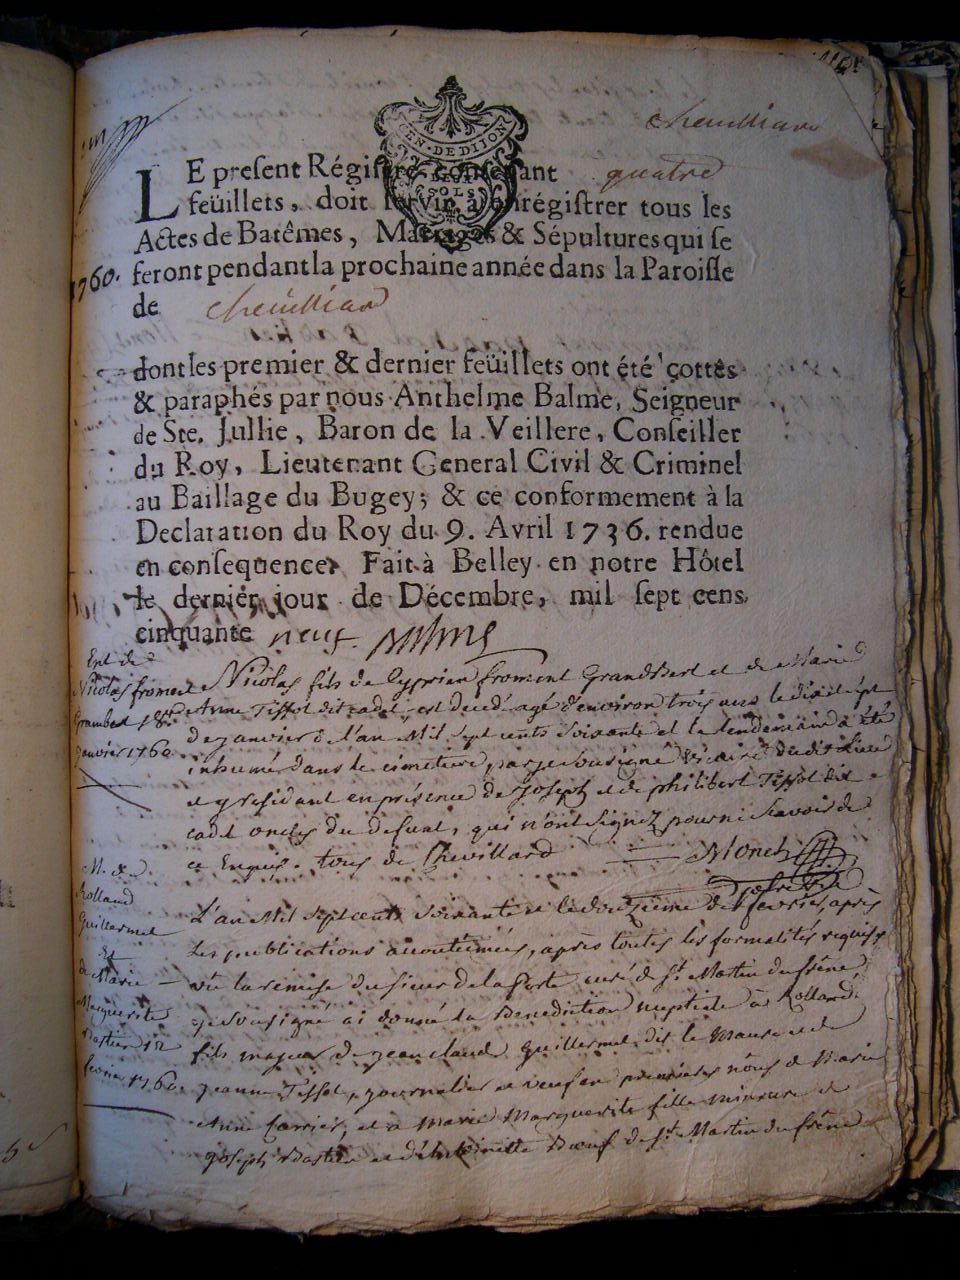 cheuilliard
GEN. DE DIJON
DEUX
SOLS
LE present Régistre contenant quatre
feüillets, doit servir à enrégistrer tous les
Actes de Batêmes, Mariages & Sépultures qui se
1760. feront pendant la prochaine année dans la Paroisse
de cheuilliard
dont les premier & dernier feüillets ont été cottés
& paraphés par nous Anthelme Balme, Seigneur
de Ste. Jullie, Baron de la Veillere, Conseiller
du Roy, Lieutenant General Civil & Criminel
au Baillage du Bugey; & ce conformement à la
Declaration du Roy du 9. Avril 1736. rendue
en consequence. Fait à Belley en notre Hôtel
le dernier jour de Décembre, mil sept cens
cinquante neuf. Balme
Ent de
Nicolas froment
Grambert
janvier 1760
Nicolas fils de Cyprien froment Grandbert et de Marie
Anne Tissot dit cadet, est decedé agé d'environ trois ans le dixsept
de janvier de l'an Mil sept cents soixante et le lendemain a été
inhumé dans le cimetiere par je soussigné vicaire du dit lieu
et y residant en présence de joseph et de philibert Tissot dit
cadet oncles du defunt, qui n'ont signez pour ni scavoir de
ce Enquis. tous de Chevillard Monet
M. de
Rolland
Guillermet
Et
de Marie
Marguerite
Bastien 12
fevrier 1760
L'an Mil sept cents soixante et le douzième de fevrier, après
les publications accoutumées, après toutes les formalités requises
vû la remise du sieur de la porte curé de St. Martin du frêne,
je soussigné ai donné la Benediction nuptiale à Rolland
fils majeur de jean claude Guillermet dit le et de
jeanne Tissot, journalier et veuf en premieres nôces de Marie
Anne Carrier, et à Marie Marguerite fille mineure de
joseph Bastien et d'Antoinette Boeuf de St. Martin du frêne